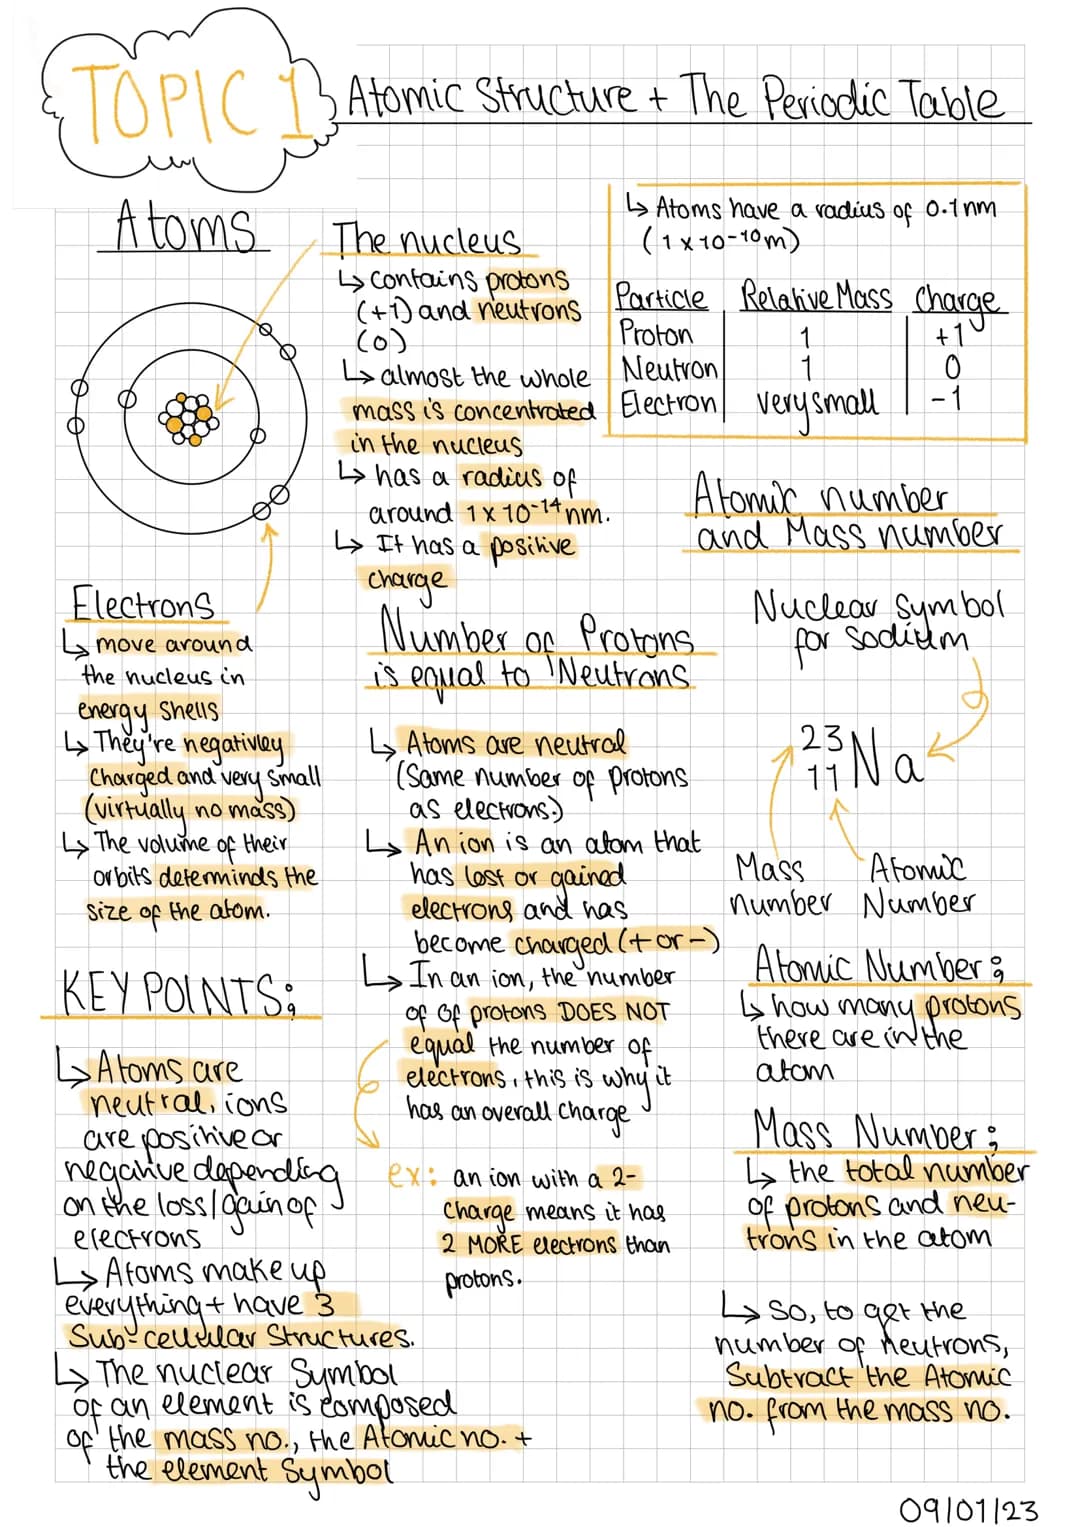 TOPIC 1
Atomic Structure + The Periodic Table
Atoms
The nucleus
↳ contains protons
(+1) and neutrons
(0)
↳ almost the whole
mass is concentrated
in the nucleus
↳ has a radius of
around 1 x 10-14 nm.
↳ It has a positive
charge
↳ Atoms have a radius of 0.1nm
(1 x 10-10m)
Particle Relative Mass Charge
Proton 1 +1
Neutron 1 0
Electron very small -1
Electrons
↳ move around
the nucleus in
energy shells
↳ They're negativley
Charged and very small
(virtually no mass)
↳ The volume of their
orbits determinds the
size of the atom.
KEY POINTS:
↳ Atoms are
neutral, ions
are positive or
negative depending
on the loss/gain of
electrons
↳ Atoms make up
everything + have 3
Sub-cellular Structures.
↳ The nuclear Symbol
of an element is composed
of the mass no., the Atomic no. +
the element Symbol
Number of Protons
is equal to Neutrons
↳ Atoms are neutral
(Same number of protons
as electrons.)
↳ An ion is an atom that
has lost or gained
electrons and has
become charged (+ or -)
↳ In an ion, the number
of of protons DOES NOT
equal the number of
electrons, this is why it
has an overall charge
ex: an ion with a 2-
Charge means it has
2 MORE electrons than
protons.
Atomic number
and Mass number
Nuclear Symbol
for Sodium
23
11 Na
Mass Atomic
number Number
Atomic Number;
↳ how many protons
there are in the
atom
Mass Number;
↳ the total number
of protons and neu-
trons in the atom
↳ So, to get the
number of neutrons,
Subtract the Atomic
no. from the mass no.
09/01/23